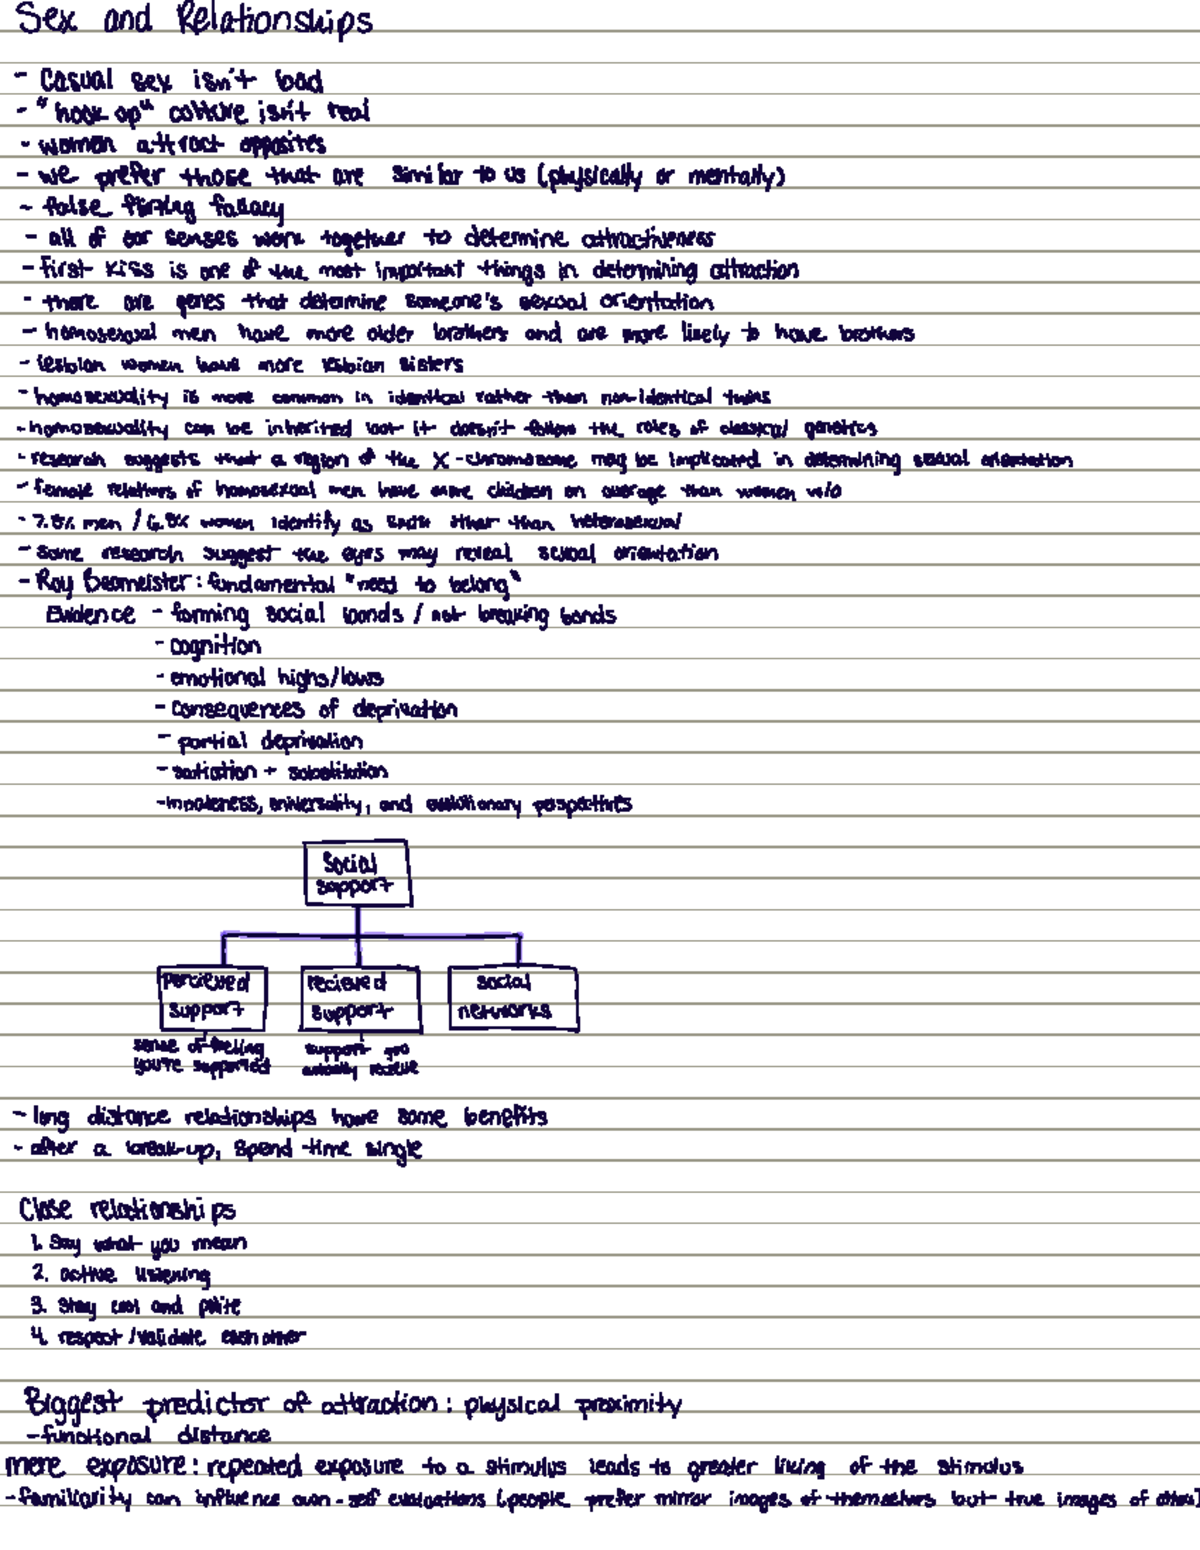 Sex and Relationships
- Casual sex isn't bad
- "hook up" culture isn't real
- women attract opposites
- we prefer those that are similar to us (physically or mentally)
- false flirting fallacy
- all of our senses work together to determine attractiveness
- first kiss is one of the most important things in determining attraction
- there are genes that detemine someone's sexual orientation
- homosexual men have more older brothers and are more likely to have brothers
- lesbian women have more lesbian sisters
- homosexuality is more common in identical rather than non-identical twins
- homosexuality can be inherited but it doesn't follow the rules of classical genetics
- research suggests that a region of the X-chromosome may be implicated in determining sexual orientation
- female relatives of homosexual men have more children on average than women w/o
- 7.8% men / 6.8% women identify as other than heterosexual
- some research suggest the eyes may reveal sexual orientation
- Roy Baumeister: fundamental "need to belong"
Evidence - forming social bonds / not breaking bonds
- cognition
- emotional highs/lows
- consequences of deprivation
- partial deprivation
- satiation + substitution
- innateness, universality, and evolutionary perspectives
Social
support
percieved
support
recieved
support
social
networks
sense of feeling
you're supported
support you
actually receive
- long distance relationships have some benefits
- after a break-up, spend time single
Close relationships
1. Say what you mean
2. active listening
3. Stay cool and polite
4. respect/validate each other
Biggest predictor of attraction: physical proximity
- functional distance
mere exposure: repeated exposure to a stimulus leads to greater liking of the stimulus
- familiarity can influence own-self evaluations (people prefer mirror images of themselves but true images of others)